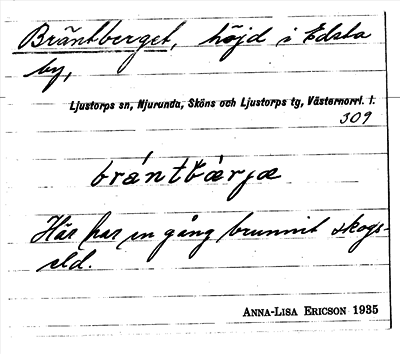 Bräntberget, höjd i Edsta
by,
Ljustorps sn, Njurunda, Sköns och Ljustorps tg, Västernorrl. l.
309
bräntbärjæ
Här har en gång brunnit skogs-
eld.
ANNA-LISA ERICSON 1935